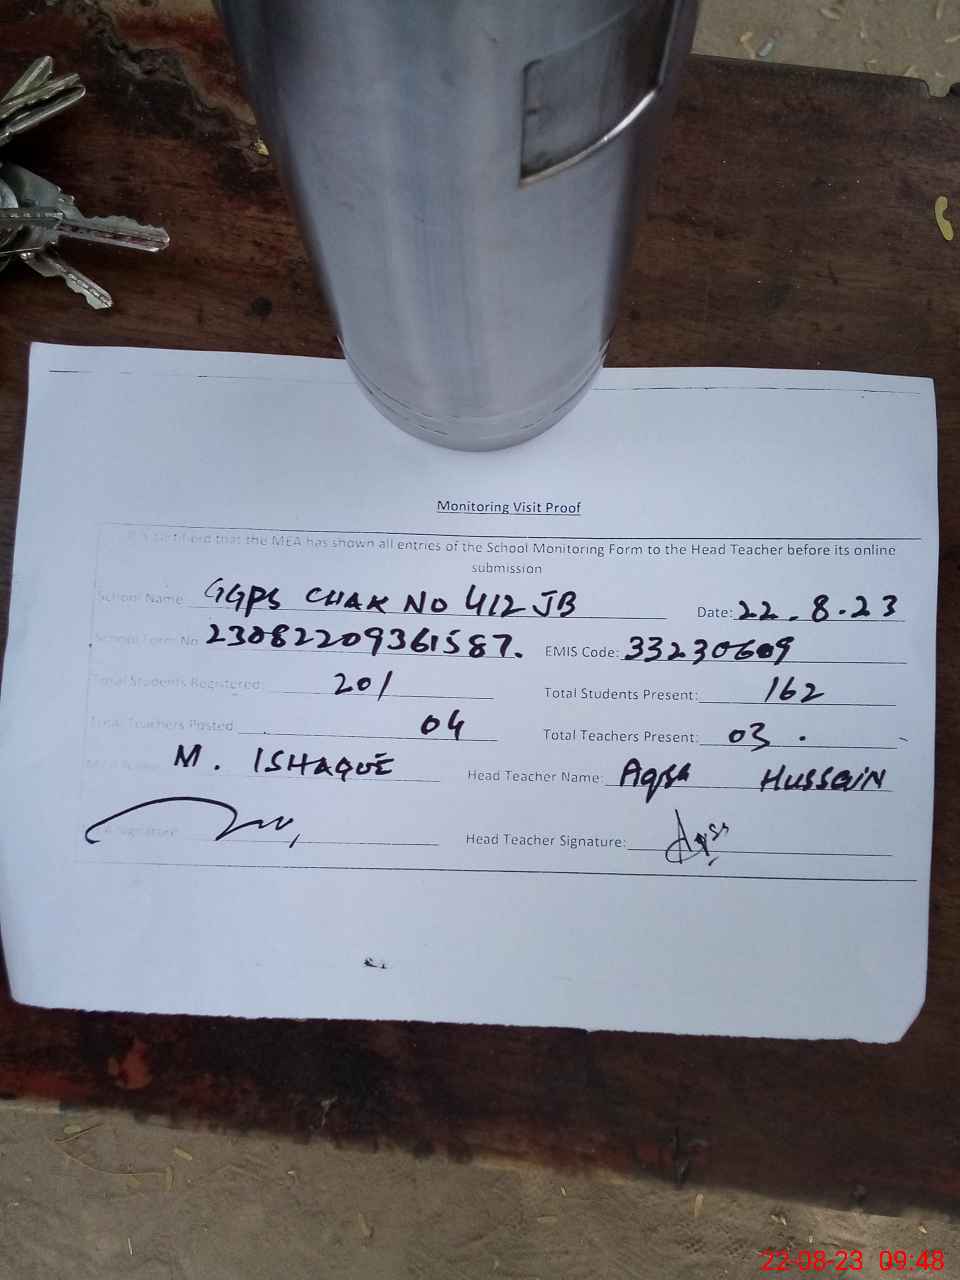 Monitoring Visit Proof
that the MEA has shown all entries of the School Monitoring Form to the Head Teacher before its online
submission
School Name: GGPS CHAK NO 412 JB Date: 22.8.23
School Form No 23082209361587. EMIS Code: 33230609
Total Students Registered: 201 Total Students Present: 162
Total Teachers Posted 04 Total Teachers Present: 03.
MEA Name M. ISHAQUE Head Teacher Name: Aqsa HUSSAIN
Signature Head Teacher Signature: Aqsa
22-08-23 09:48